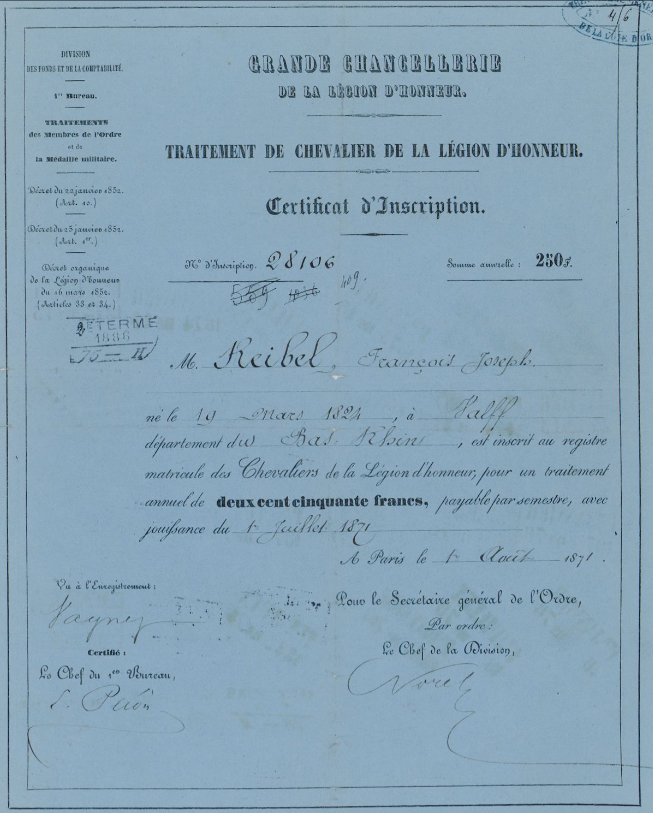 4/6
DE LA COTE D'OR
DIVISION
DES FONDS ET DE LA COMPTABILITÉ.
1er Bureau.
TRAITEMENTS
des Membres de l'Ordre
et de
la Médaille militaire.
Décret du 22 janvier 1852.
(Art. 10.)
Décret du 25 janvier 1852.
(Art. 1er.)
Décret organique
de la Légion d'honneur
du 16 mars 1852.
(Articles 33 et 34.)
2E TERME
1886
75 — H
GRANDE CHANCELLERIE
DE LA LÉGION D'HONNEUR.
TRAITEMENT DE CHEVALIER DE LA LÉGION D'HONNEUR.
Certificat d'Inscription.
N° d'Inscription. 28106
Somme annuelle : 250 f.
409.
M. Keibel, François Joseph.
né le 19 Mars 1824, à Valff
département du Bas Rhin, est inscrit au registre
matricule des Chevaliers de la Légion d'honneur, pour un traitement
annuel de deux cent cinquante francs, payable par semestre, avec
jouissance du 1er Juillet 1871
A Paris le 1er Août 1871.
Vu à l'Enregistrement :
Certifié :
Le Chef du 1er Bureau,
Pour le Secrétaire général de l'Ordre,
Par ordre :
Le Chef de la Division,